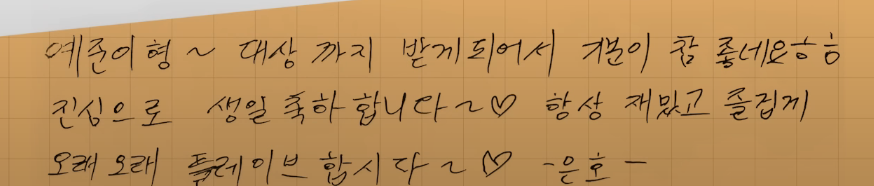 예준이형~ 대상 까지 받게되어서 기분이 참 좋네요ㅎㅎ
진심으로 생일축하합니다~♡ 항상 재밌고 즐겁게
오래오래 플레이브합시다~♡ -은호-